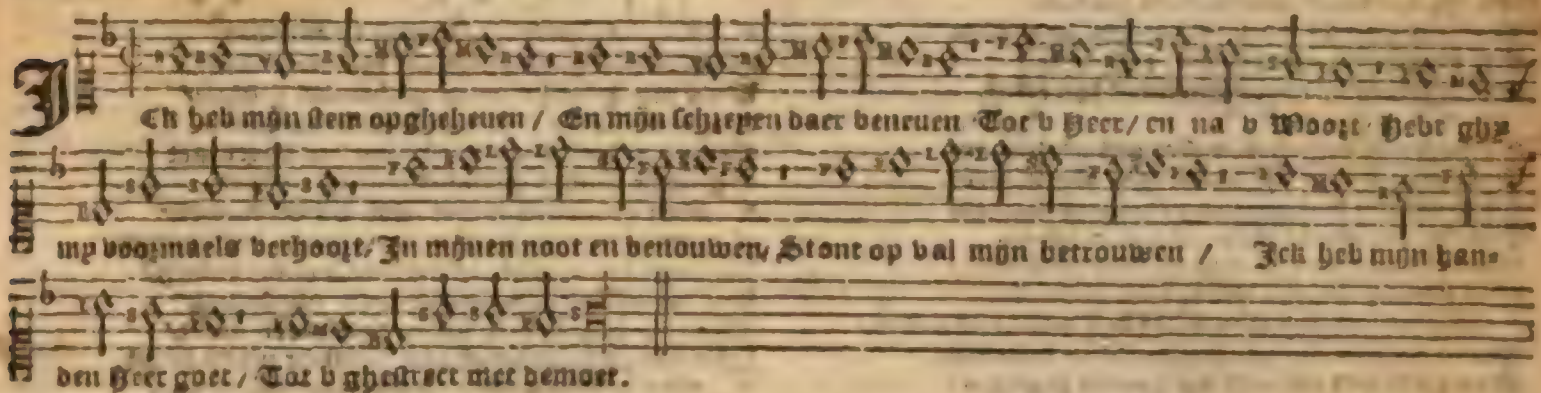 ICk heb mijn stem opgheheuen / En mijn schreyen daer beneuen Tot v Heer / en na v Woort Hebt ghy
my voormaels verhoort / In mijnen noot en benouwen / Stont op val mijn betrouwen / Ick heb mijn han-
den Heer goet / Tot v ghestrect met demoet.